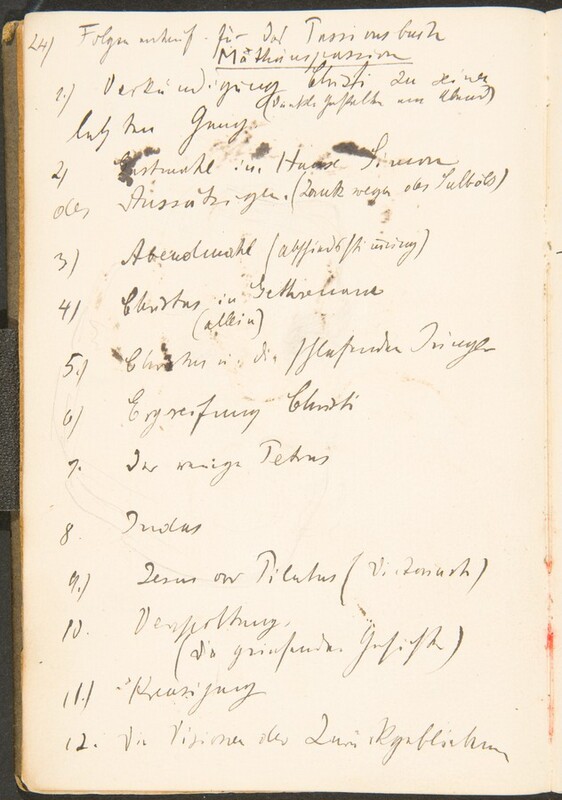 24) Folgenentwurf für das Passionsbuch
Mathäuspassion
1.) Verkündigung Christi zu seinem
(dunkle Gestalten am Abend)
letzten Gang
2) Gastmahl im Hause Simon
des Aussätzigen. (Zank wegen des Salböls)
3) Abendmahl (Abschiedsstimmung)
4) Christus in Gethsemane
(allein)
5.) Christus u. die schlafenden Jünger
6) Ergreifung Christi
7. Der reuige Petrus
8. Judas
9.) Jesus vor Pilatus (
)
10. Verspottung.
(Die grinsenden Gesichter)
11.) Kreuzigung
12. Die Visionen der Zurückgebliebenen